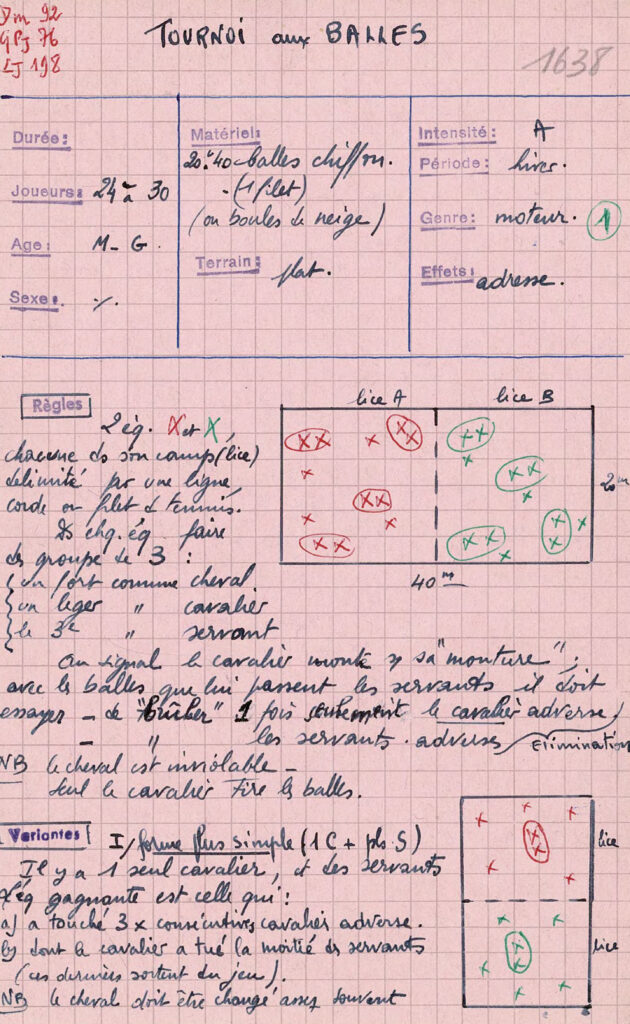 Dm 92
GPJ 76
LJ 198
TOURNOI aux BALLES
1638
Durée:
Joueurs: 24 à 30
Age: M - G.
Sexe:
Matériel:
20 à 40 balles chiffon.
- (1 filet)
(ou boules de neige)
Terrain: plat.
Intensité: A
Période: hiver.
Genre: moteur. 1
Effets: adresse.
Règles
2 éq. X et X,
chacune ds son camp (lice)
délimité par une ligne,
corde ou filet de tennis.
Ds chq. éq faire
des groupe de 3 :
un fort comme cheval
un léger " cavalier
le 3e " servant
lice A
lice B
20m
40m
Au signal le cavalier monte sa "monture";
avec les balles que lui passent les servants il doit
essayer - de 1 fois seulement le cavalier adverse
- " les servants adverses
Elimination
NB le cheval est inviolable -
Seul le cavalier tire les balles.
Variantes
I/ forme plus simple (1 C + pls S)
Il y a 1 seul cavalier, et des servants
L'éq gagnante est celle qui :
a) a touché 3 x consécutives cavalier adverse.
b) dont le cavalier a tué la moitié des servants
(ces derniers sortent du jeu).
NB le cheval doit être changé assez souvent
lice
lice